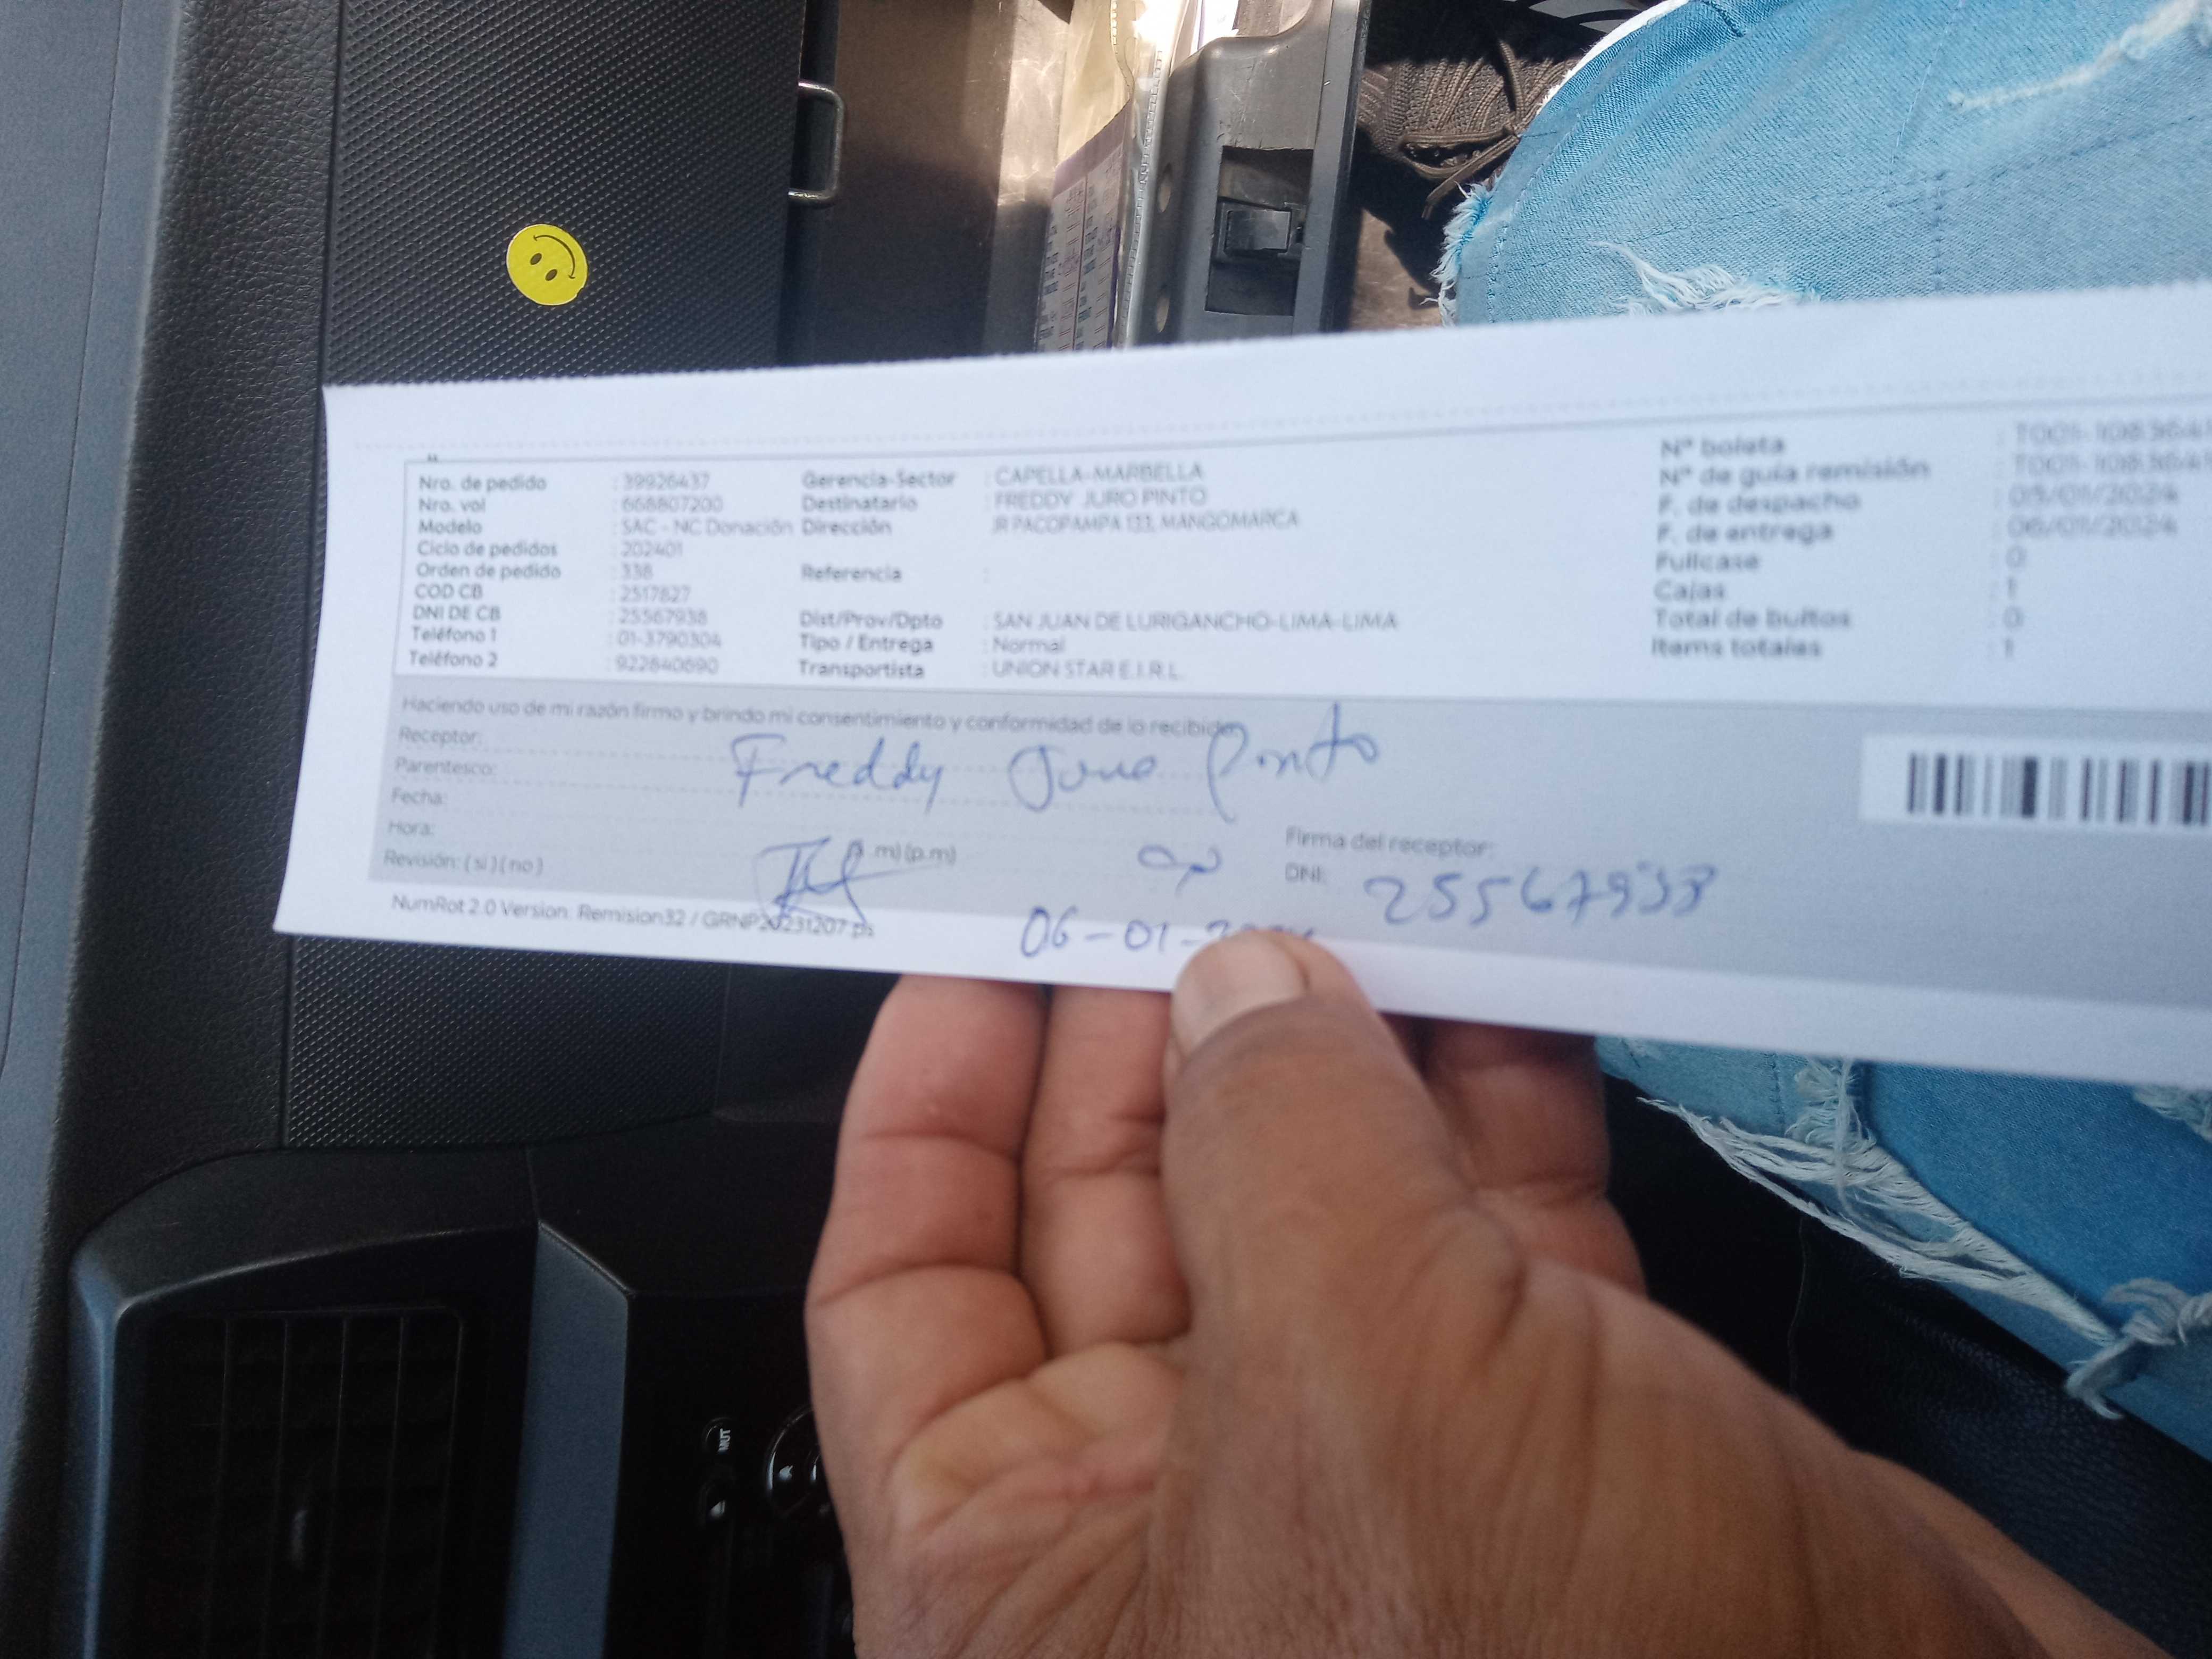 Nro. de pedido : 39926437 Gerencia-Sector : CAPELLA-MARBELLA Nº boleta
Nro. vol : 668807200 Destinatario : FREDDY JURO PINTO Nº de guía remisión
Modelo : SAC - NC Donación Dirección JR PACOPAMPA 133, MANGOMARCA F. de despacho : 05/01/2024
Ciclo de pedidos : 202401 F. de entrega : 06/01/2024
Orden de pedido : 338 Referencia : Fullcase : 0
COD CB : 2517827 Cajas : 1
DNI DE CB : 25567938 Dist/Prov/Dpto : SAN JUAN DE LURIGANCHO-LIMA-LIMA Total de bultos : 0
Teléfono 1 : 01-3790304 Tipo / Entrega : Normal Items totales : 1
Teléfono 2 : 922840690 Transportista : UNION STAR E.I.R.L.
Haciendo uso de mi razón firmo y brindo mi consentimiento y conformidad de lo recibido
Receptor:
Freddy Juro Pinto
Parentesco:
Fecha:
Hora: m) (p.m) Firma del receptor:
Revisión: ( si ) ( no ) DNI: 25567938
NumRot 2.0 Version: Remision32 / GRNP20231207.ps
06-01-
MUT